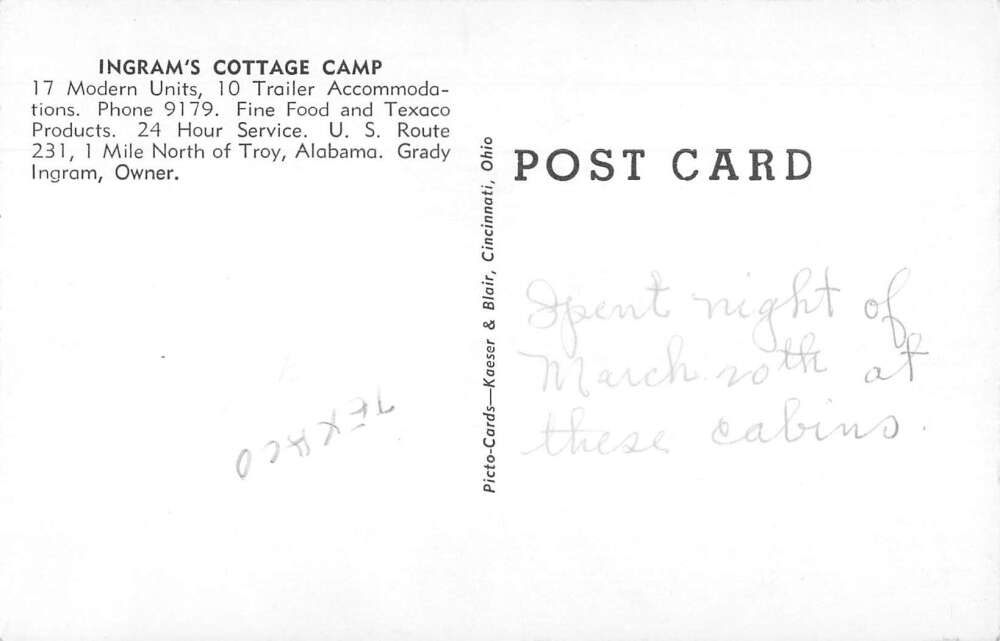 INGRAM'S COTTAGE CAMP
17 Modern Units, 10 Trailer Accommoda-
tions. Phone 9179. Fine Food and Texaco
Products. 24 Hour Service. U. S. Route
231, 1 Mile North of Troy, Alabama. Grady
Ingram, Owner.
Picto-Cards—Kaeser & Blair, Cincinnati, Ohio
POST CARD
Spent night of
March 20th at
these cabins.
TEXACO